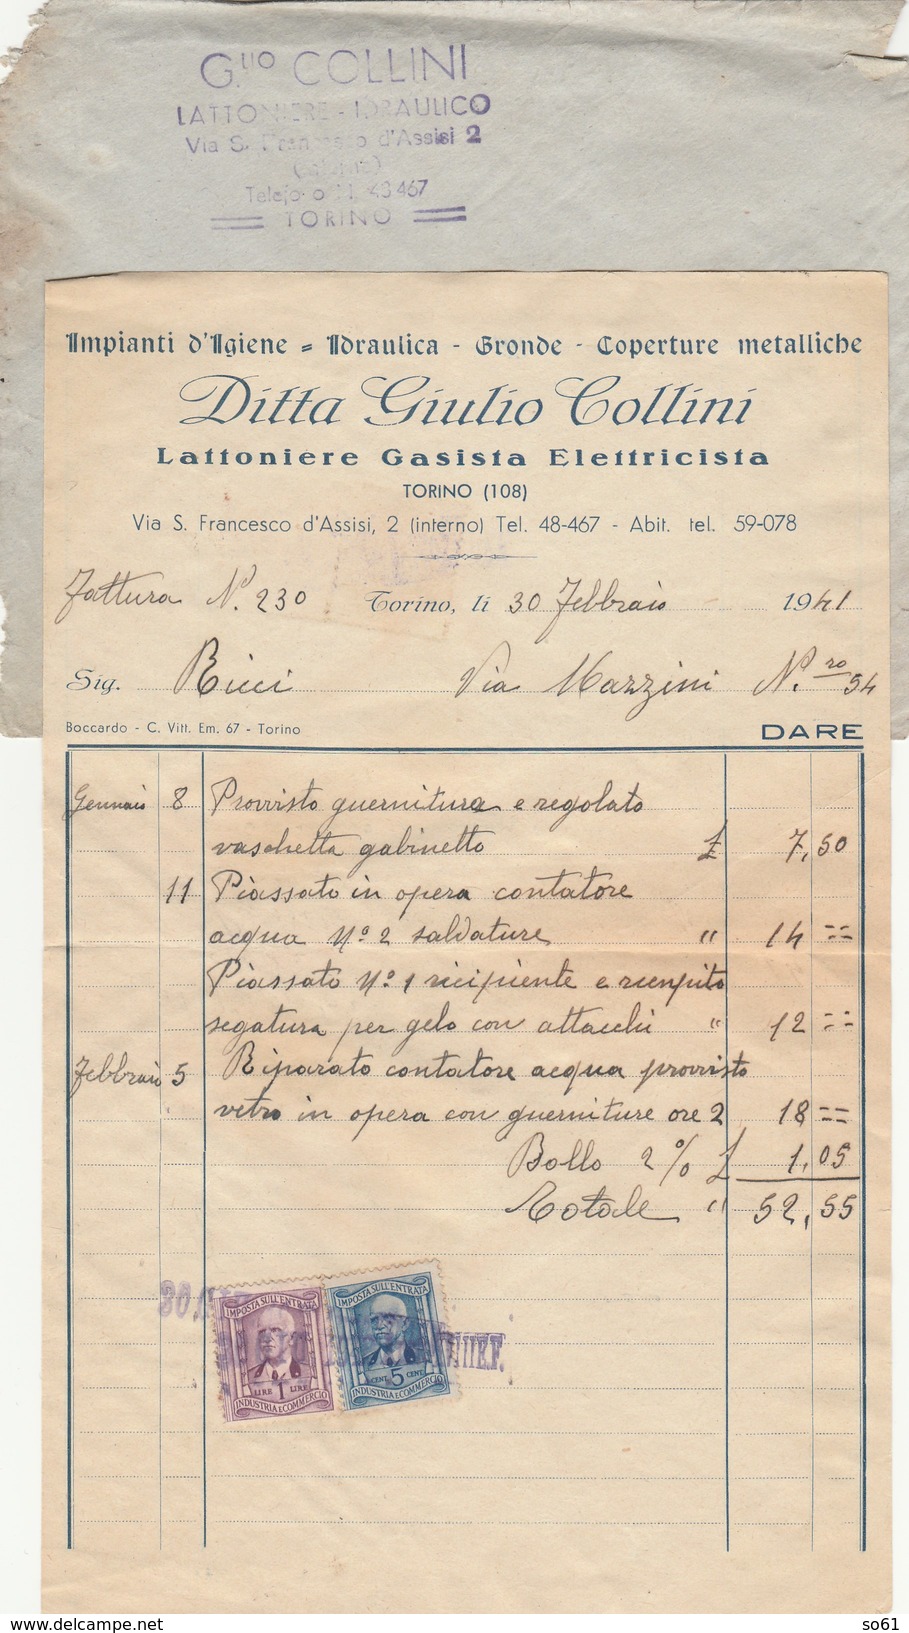 G.LIO COLLINI
LATTONIERE - IDRAULICO
Via S. Francesco d'Assisi 2
Telefono N. 48467
TORINO
Impianti d'Igiene = Idraulica - Gronde - Coperture metalliche
Ditta Giulio Collini
Lattoniere Gasista Elettricista
TORINO (108)
Via S. Francesco d'Assisi, 2 (interno) Tel. 48-467 - Abit. tel. 59-078
Fattura N. 230 Torino, li 30 Febbraio 1941
Sig. Ricci Via Mazzini N.ro 54
Boccardo - C. Vitt. Em. 67 - Torino DARE
Gennaio 8 Provvisto guernitura e regolato
vaschetta gabinetto £ 7,50
11 Piassato in opera contatore
acqua Nº 2 saldature " 14 ==
Piassato Nº 1 recipiente e riempito
segatura per gelo con attacchi " 12 ==
Febbraio 5 Riparato contatore acqua provvisto
vetro in opera con guerniture ore 2 18 ==
Bollo 2 % £ 1,05
Totale " 52,55
30
IMPOSTA SULL'ENTRATA
LIRE 1 LIRE
INDUSTRIA E COMMERCIO
IMPOSTA SULL'ENTRATA
CENT. 5 CENT.
INDUSTRIA E COMMERCIO
www.delcampe.net
so61